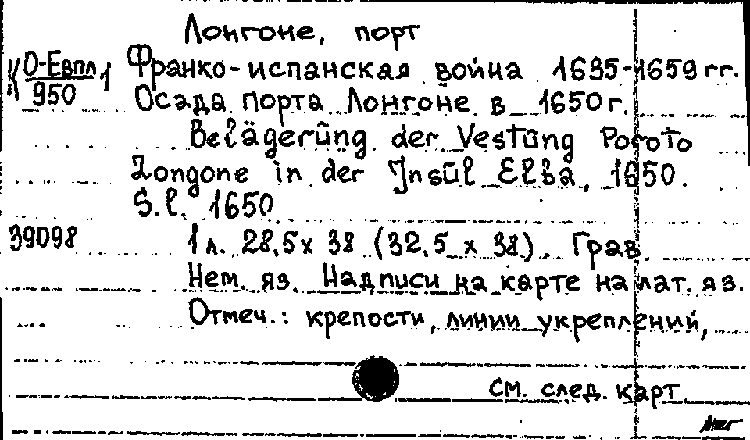 Лонгоне, порт
К О-Евпл 1 Франко-испанская война 1635-1659 гг.
950 Осада порта Лонгоне в 1650 г.
Belägerŭng der Vestŭng Poroto
Longone in der Insŭl Elba, 1650.
S.l. 1650
39098 1 л. 28,5 x 38 (32,5 x 38). Грав.
Нем. яз. Надписи на карте на лат. яз.
Отмеч.: крепости, линии укреплений,
см. след. карт